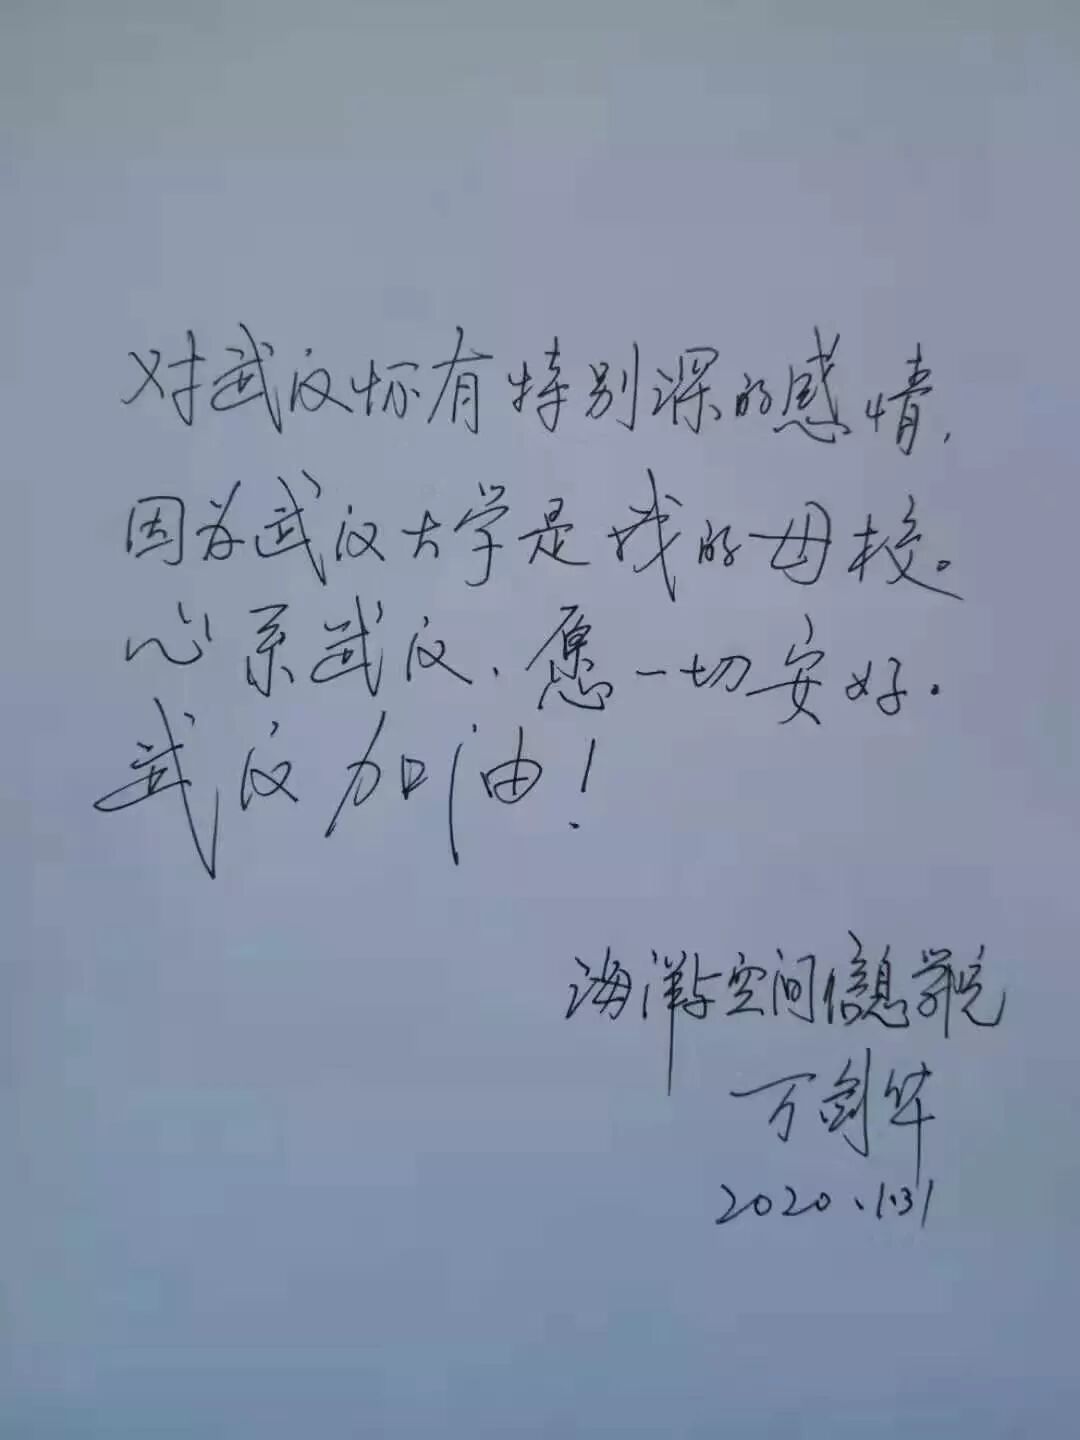 对武汉怀有特别深的感情,
因为武汉大学是我的母校。
心系武汉、愿一切安好.
武汉加油!
海洋与空间信息学院
万剑华
2020.1.31